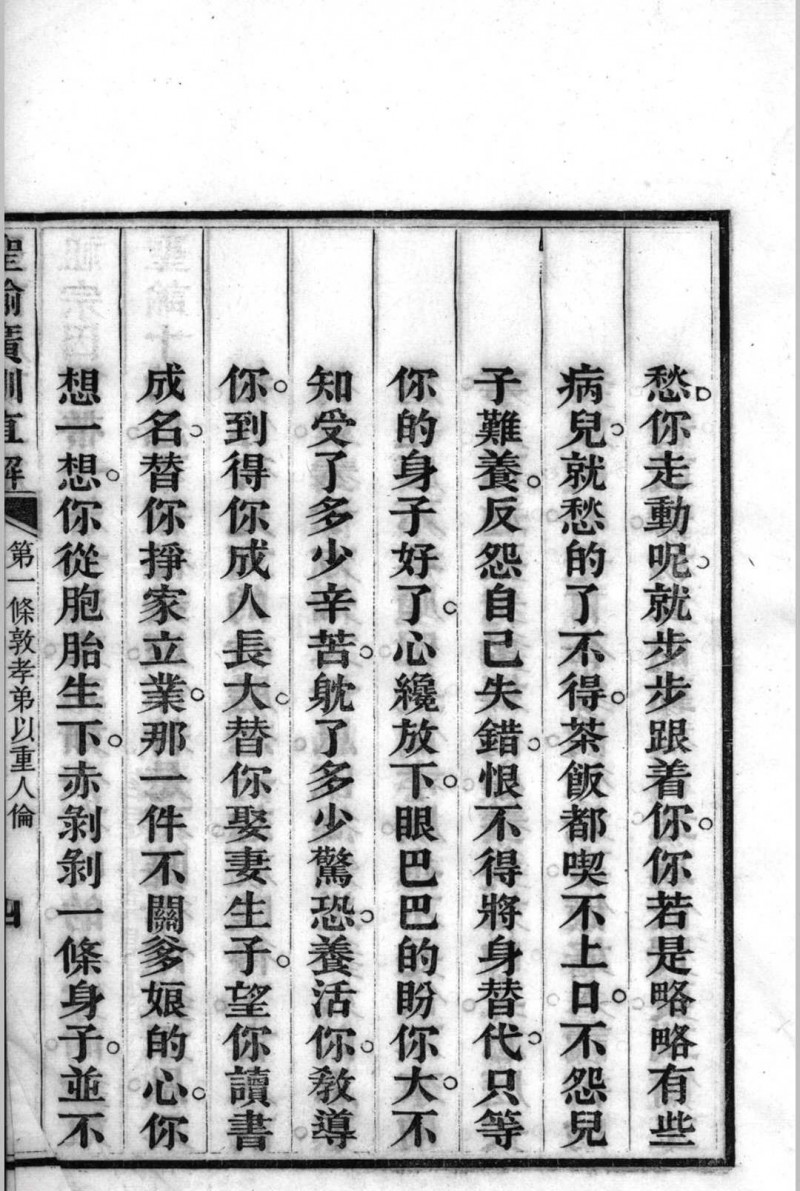 愁。你走動呢。就步步跟着你。你若是略略有些
病兒。就愁的了不得。茶飯都喫不上口。不怨兒
子難養。反怨自己失錯。恨不得將身替代。只等
你的身子好了。心纔放下。眼巴巴的盼你大。不
知受了多少辛苦。躭了多少驚恐。養活你。教導
你。到得你成人長大。替你娶妻生子。望你讀書
成名。替你掙家立業。那一件不關爹娘的心。你
想一想。你從胞胎生下。赤剝剝一條身子。並不
聖諭廣訓直解
第一條敦孝弟以重人倫
四